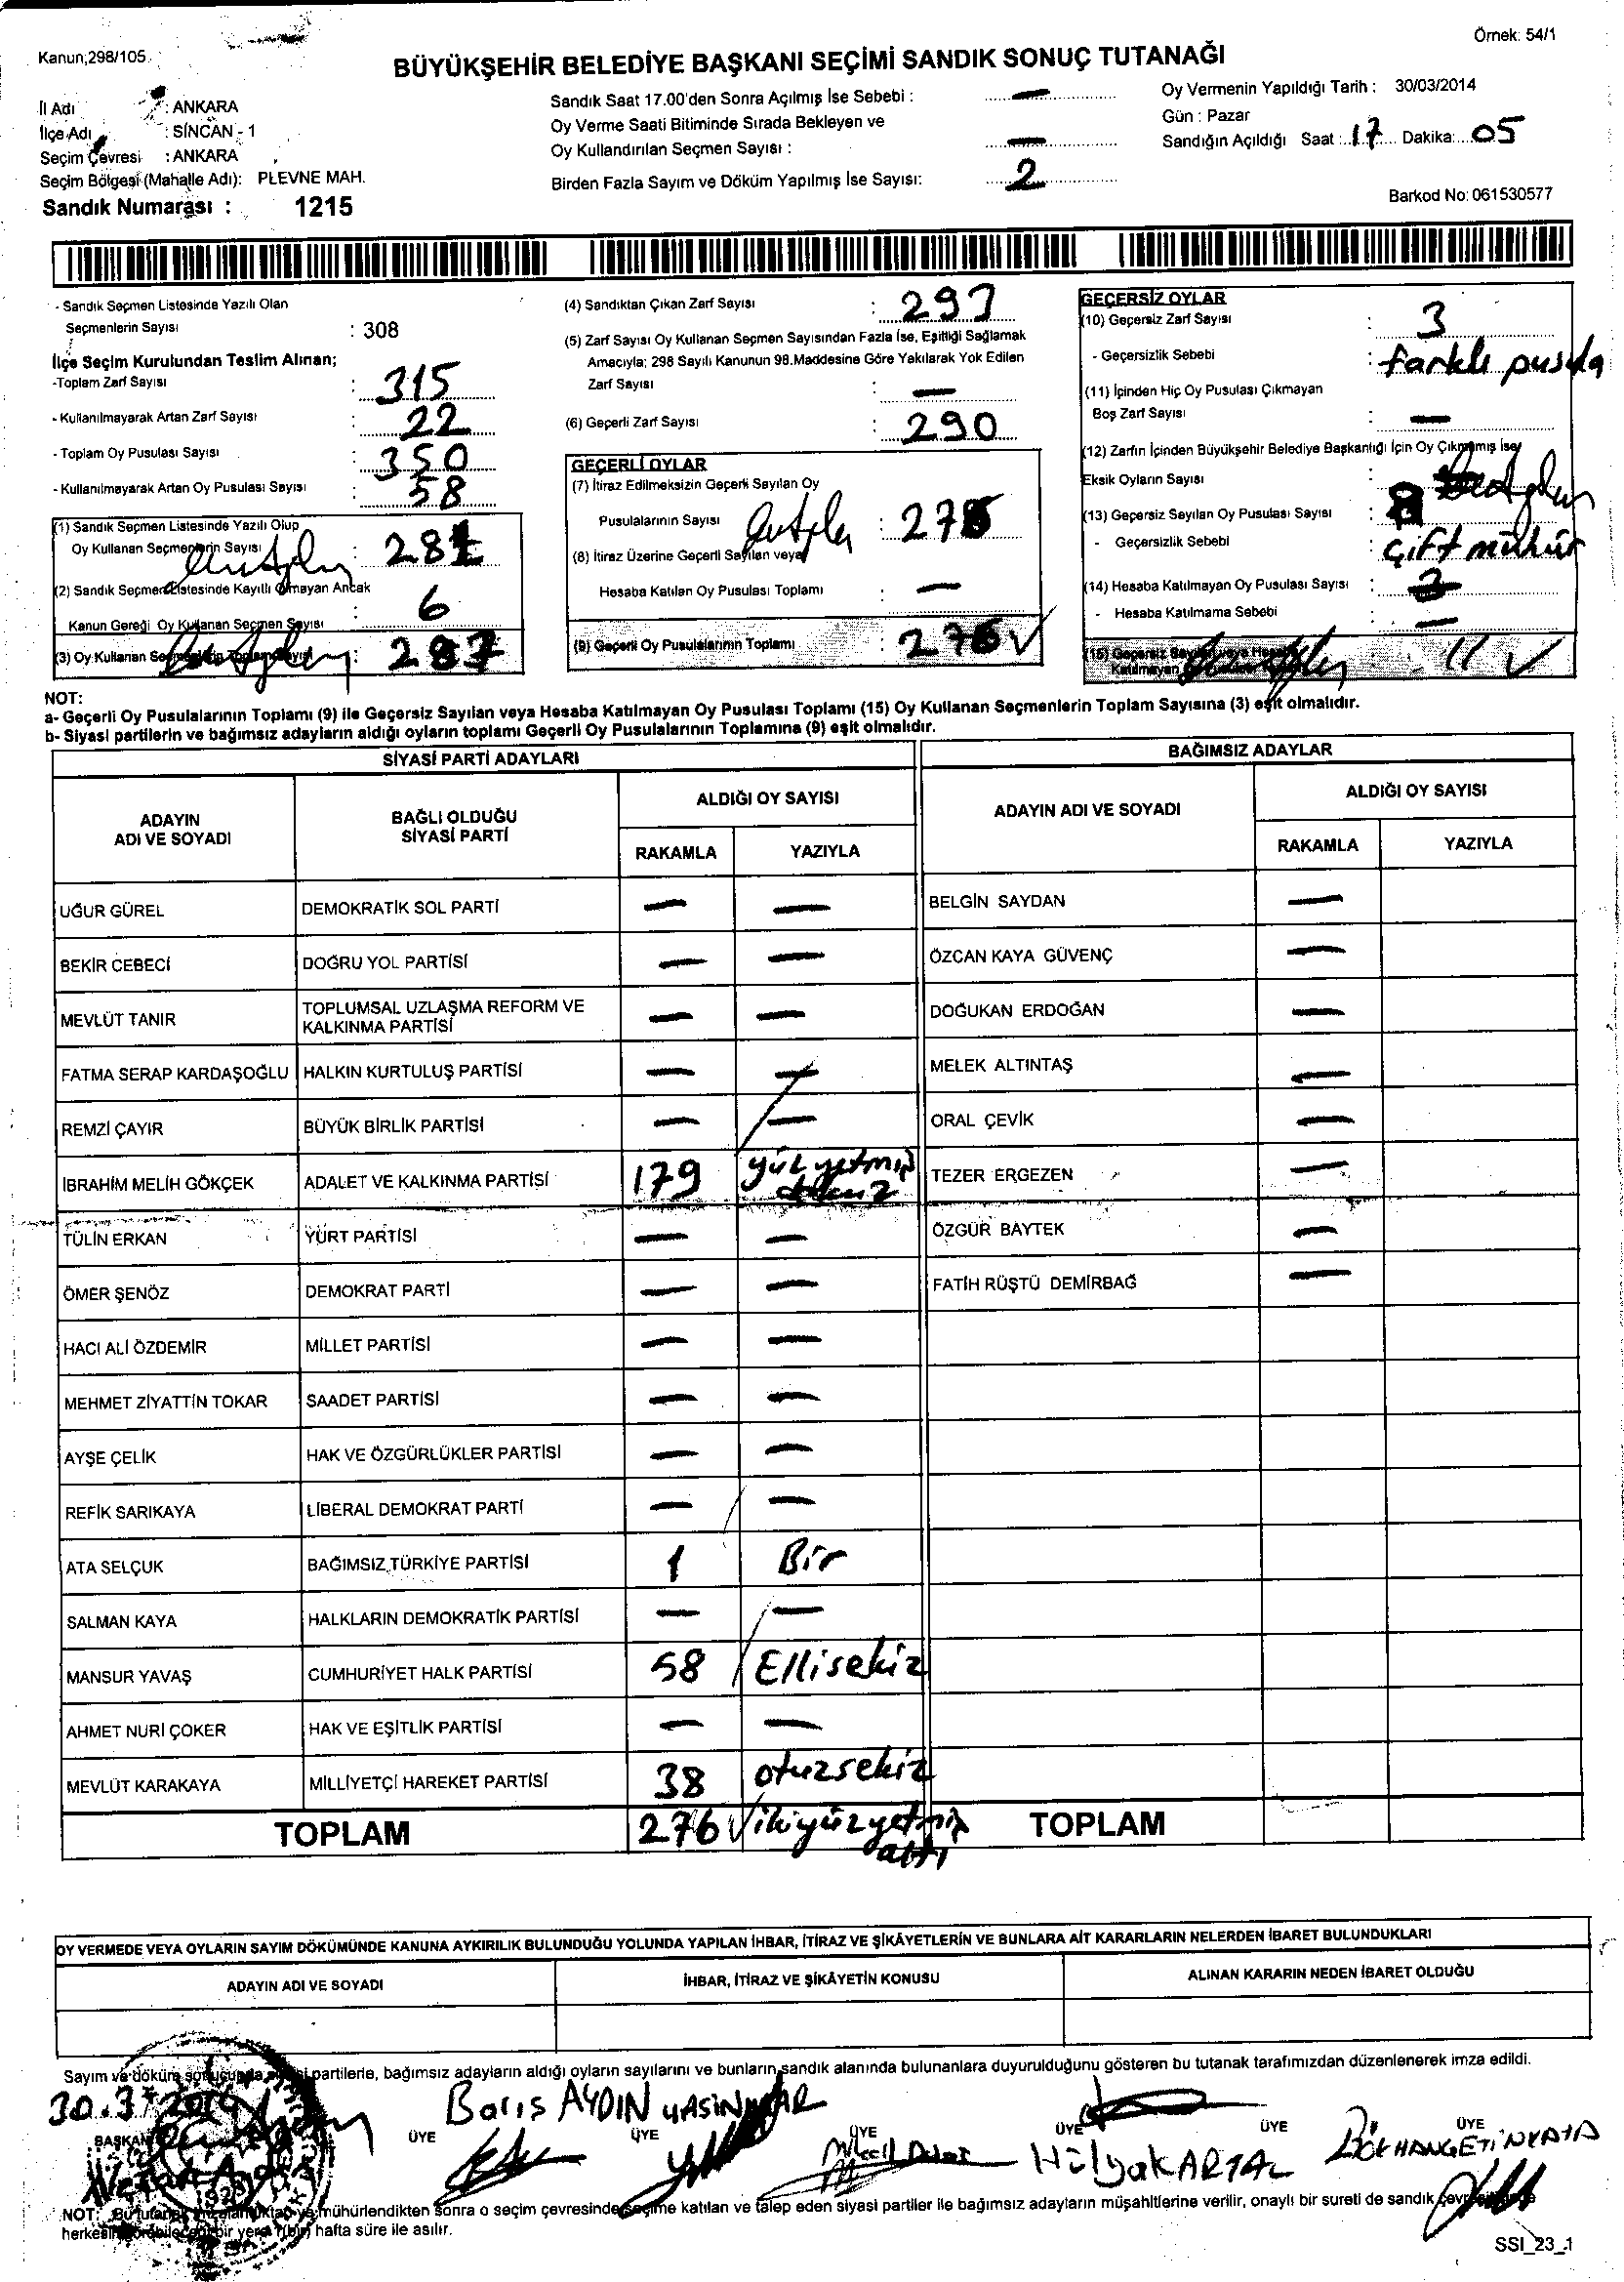 Kanun;298/105
Örnek: 54/1
BÜYÜKŞEHİR BELEDİYE BAŞKANI SEÇİMİ SANDIK SONUÇ TUTANAĞI
İl Adı : ANKARA
İlçe Adı : SİNCAN - 1
Seçim Çevresi : ANKARA
Seçim Bölgesi (Mahalle Adı): PLEVNE MAH.
Sandık Numarası : 1215
Sandık Saat 17.00'den Sonra Açılmış İse Sebebi : —
Oy Verme Saati Bitiminde Sırada Bekleyen ve
Oy Kullandırılan Seçmen Sayısı : —
Birden Fazla Sayım ve Döküm Yapılmış İse Sayısı: 2
Oy Vermenin Yapıldığı Tarih : 30/03/2014
Gün : Pazar
Sandığın Açıldığı Saat : 17 Dakika: 05
Barkod No: 061530577
- Sandık Seçmen Listesinde Yazılı Olan
Seçmenlerin Sayısı : 308
İlçe Seçim Kurulundan Teslim Alınan;
-Toplam Zarf Sayısı : 315
- Kullanılmayarak Artan Zarf Sayısı : 22
- Toplam Oy Pusulası Sayısı : 350
- Kullanılmayarak Artan Oy Pusulası Sayısı : 58
(1) Sandık Seçmen Listesinde Yazılı Olup
Oy Kullanan Seçmenlerin Sayısı :
(2) Sandık Seçmen Listesinde Kayıtlı Olmayan Ancak
Kanun Gereği Oy Kullanan Seçmen Sayısı : 6
(3) Oy Kullanan : 287
(4) Sandıktan Çıkan Zarf Sayısı : 293
(5) Zarf Sayısı Oy Kullanan Seçmen Sayısından Fazla İse, Eşitliği Sağlamak
Amacıyla; 298 Sayılı Kanunun 98.Maddesine Göre Yakılarak Yok Edilen
Zarf Sayısı : —
(6) Geçerli Zarf Sayısı : 290
GEÇERLİ OYLAR
(7) İtiraz Edilmeksizin Geçerli Sayılan Oy
Pusulalarının Sayısı :
(8) İtiraz Üzerine Geçerli Sayılan veya
Hesaba Katılan Oy Pusulası Toplamı : —
(9) Geçerli Oy Pusulalarının Toplamı : 276
GEÇERSİZ OYLAR
(10) Geçersiz Zarf Sayısı : 3
- Geçersizlik Sebebi : farklı pusula
(11) İçinden Hiç Oy Pusulası Çıkmayan
Boş Zarf Sayısı : —
(12) Zarfın İçinden Büyükşehir Belediye Başkanlığı İçin Oy Çıkmamış İse,
Eksik Oyların Sayısı
(13) Geçersiz Sayılan Oy Pusulası Sayısı : 8
- Geçersizlik Sebebi : çift mühür
(14) Hesaba Katılmayan Oy Pusulası Sayısı :
- Hesaba Katılmama Sebebi : —
(15) Geçersiz 11
NOT:
a- Geçerli Oy Pusulalarının Toplamı (9) ile Geçersiz Sayılan veya Hesaba Katılmayan Oy Pusulası Toplamı (15) Oy Kullanan Seçmenlerin Toplam Sayısına (3) eşit olmalıdır.
b- Siyasi partilerin ve bağımsız adayların aldığı oyların toplamı Geçerli Oy Pusulalarının Toplamına (9) eşit olmalıdır.
SİYASİ PARTİ ADAYLARI
ADAYIN ADI VE SOYADI
BAĞLI OLDUĞU SİYASİ PARTİ
ALDIĞI OY SAYISI
RAKAMLA YAZIYLA
UĞUR GÜREL DEMOKRATİK SOL PARTİ — —
BEKİR CEBECİ DOĞRU YOL PARTİSİ — —
MEVLÜT TANIR TOPLUMSAL UZLAŞMA REFORM VE KALKINMA PARTİSİ — —
FATMA SERAP KARDAŞOĞLU HALKIN KURTULUŞ PARTİSİ — —
REMZİ ÇAYIR BÜYÜK BİRLİK PARTİSİ — —
İBRAHİM MELİH GÖKÇEK ADALET VE KALKINMA PARTİSİ 179 yüz yetmiş dokuz
TÜLİN ERKAN YURT PARTİSİ — —
ÖMER ŞENÖZ DEMOKRAT PARTİ — —
HACI ALİ ÖZDEMİR MİLLET PARTİSİ — —
MEHMET ZİYATTİN TOKAR SAADET PARTİSİ — —
AYŞE ÇELİK HAK VE ÖZGÜRLÜKLER PARTİSİ — —
REFİK SARIKAYA LİBERAL DEMOKRAT PARTİ — —
ATA SELÇUK BAĞIMSIZ TÜRKİYE PARTİSİ 1 Bir
SALMAN KAYA HALKLARIN DEMOKRATİK PARTİSİ — —
MANSUR YAVAŞ CUMHURİYET HALK PARTİSİ 58 Ellisekiz
AHMET NURİ ÇOKER HAK VE EŞİTLİK PARTİSİ — —
MEVLÜT KARAKAYA MİLLİYETÇİ HAREKET PARTİSİ 38 otuzsekiz
TOPLAM 276 ikiyüzyetmiş altı
BAĞIMSIZ ADAYLAR
ADAYIN ADI VE SOYADI
ALDIĞI OY SAYISI
RAKAMLA YAZIYLA
BELGİN SAYDAN —
ÖZCAN KAYA GÜVENÇ —
DOĞUKAN ERDOĞAN —
MELEK ALTINTAŞ —
ORAL ÇEVİK —
TEZER ERGEZEN —
ÖZGÜR BAYTEK —
FATİH RÜŞTÜ DEMİRBAĞ —
TOPLAM
OY VERMEDE VEYA OYLARIN SAYIM DÖKÜMÜNDE KANUNA AYKIRILIK BULUNDUĞU YOLUNDA YAPILAN İHBAR, İTİRAZ VE ŞİKÂYETLERİN VE BUNLARA AİT KARARLARIN NELERDEN İBARET BULUNDUKLARI
ADAYIN ADI VE SOYADI
İHBAR, İTİRAZ VE ŞİKÂYETİN KONUSU
ALINAN KARARIN NEDEN İBARET OLDUĞU
Sayım ve döküm sonucunda siyasi partilerle, bağımsız adayların aldığı oyların sayılarını ve bunların sandık alanında bulunanlara duyurulduğunu gösteren bu tutanak tarafımızdan düzenlenerek imza edildi.
30.3.2014
Barış AYDIN YASİN
BAŞKAN ÜYE ÜYE ÜYE ÜYE ÜYE ÜYE
Hülya KARTAL
GÖKHAN ÇETİNKAYA
NOT: Bu tutanak mühürlendikten sonra o seçim çevresinde seçime katılan ve talep eden siyasi partiler ile bağımsız adayların müşahitlerine verilir, onaylı bir sureti de sandık çevresinde
herkesin görebileceği bir yere 1(bir) hafta süre ile asılır.
SSI_23_1